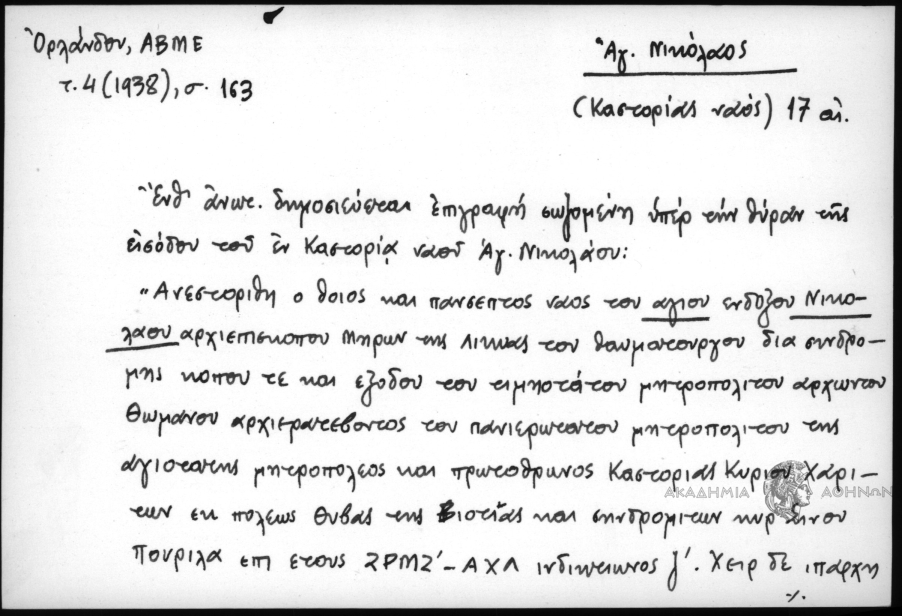 Ὀρλάνδου, ΑΒΜΕ
τ. 4 (1938), σ. 163
Ἅγ. Νικόλαος
(Καστορίας ναός) 17 αἰ.
Ἔνθ' ἄνωτ. δημοσιεύεται ἐπιγραφή σωζομένη ὑπέρ τήν θύραν τῆς
εἰσόδου τοῦ ἐν Καστορίᾳ ναοῦ Ἁγ. Νικολάου:
"Ανεστορίθη ο θοιος και πανσεπτος ναος του αγιου ενδοξου Νικο-
λαου αρχιεπισκοπου Μηρων της Λικιας του θαυματουργου δια σηνδρο-
μης κοπου τε και εξοδου του τιμηοτάτου μητροπολιτου αρχωντου
Θωμανου αρχιερατεβοντος του πανιερωτατου μητροπολιτου της
αγιοτατης μητροπολεος και πρωτοθρωνος Καστοριας Κυριου Χαρι-
των εκ πολεως Θυβας της Βιοτίας και σηνδρομιτων κυρ
Πουριλα επι ετους ΖΡΜΖ' – ΑΧΛ ινδικτιωνος ζ'. Χειρ δε ιπαρχη
./.
ΑΚΑΔΗΜΙΑ ΑΘΗΝΩΝ